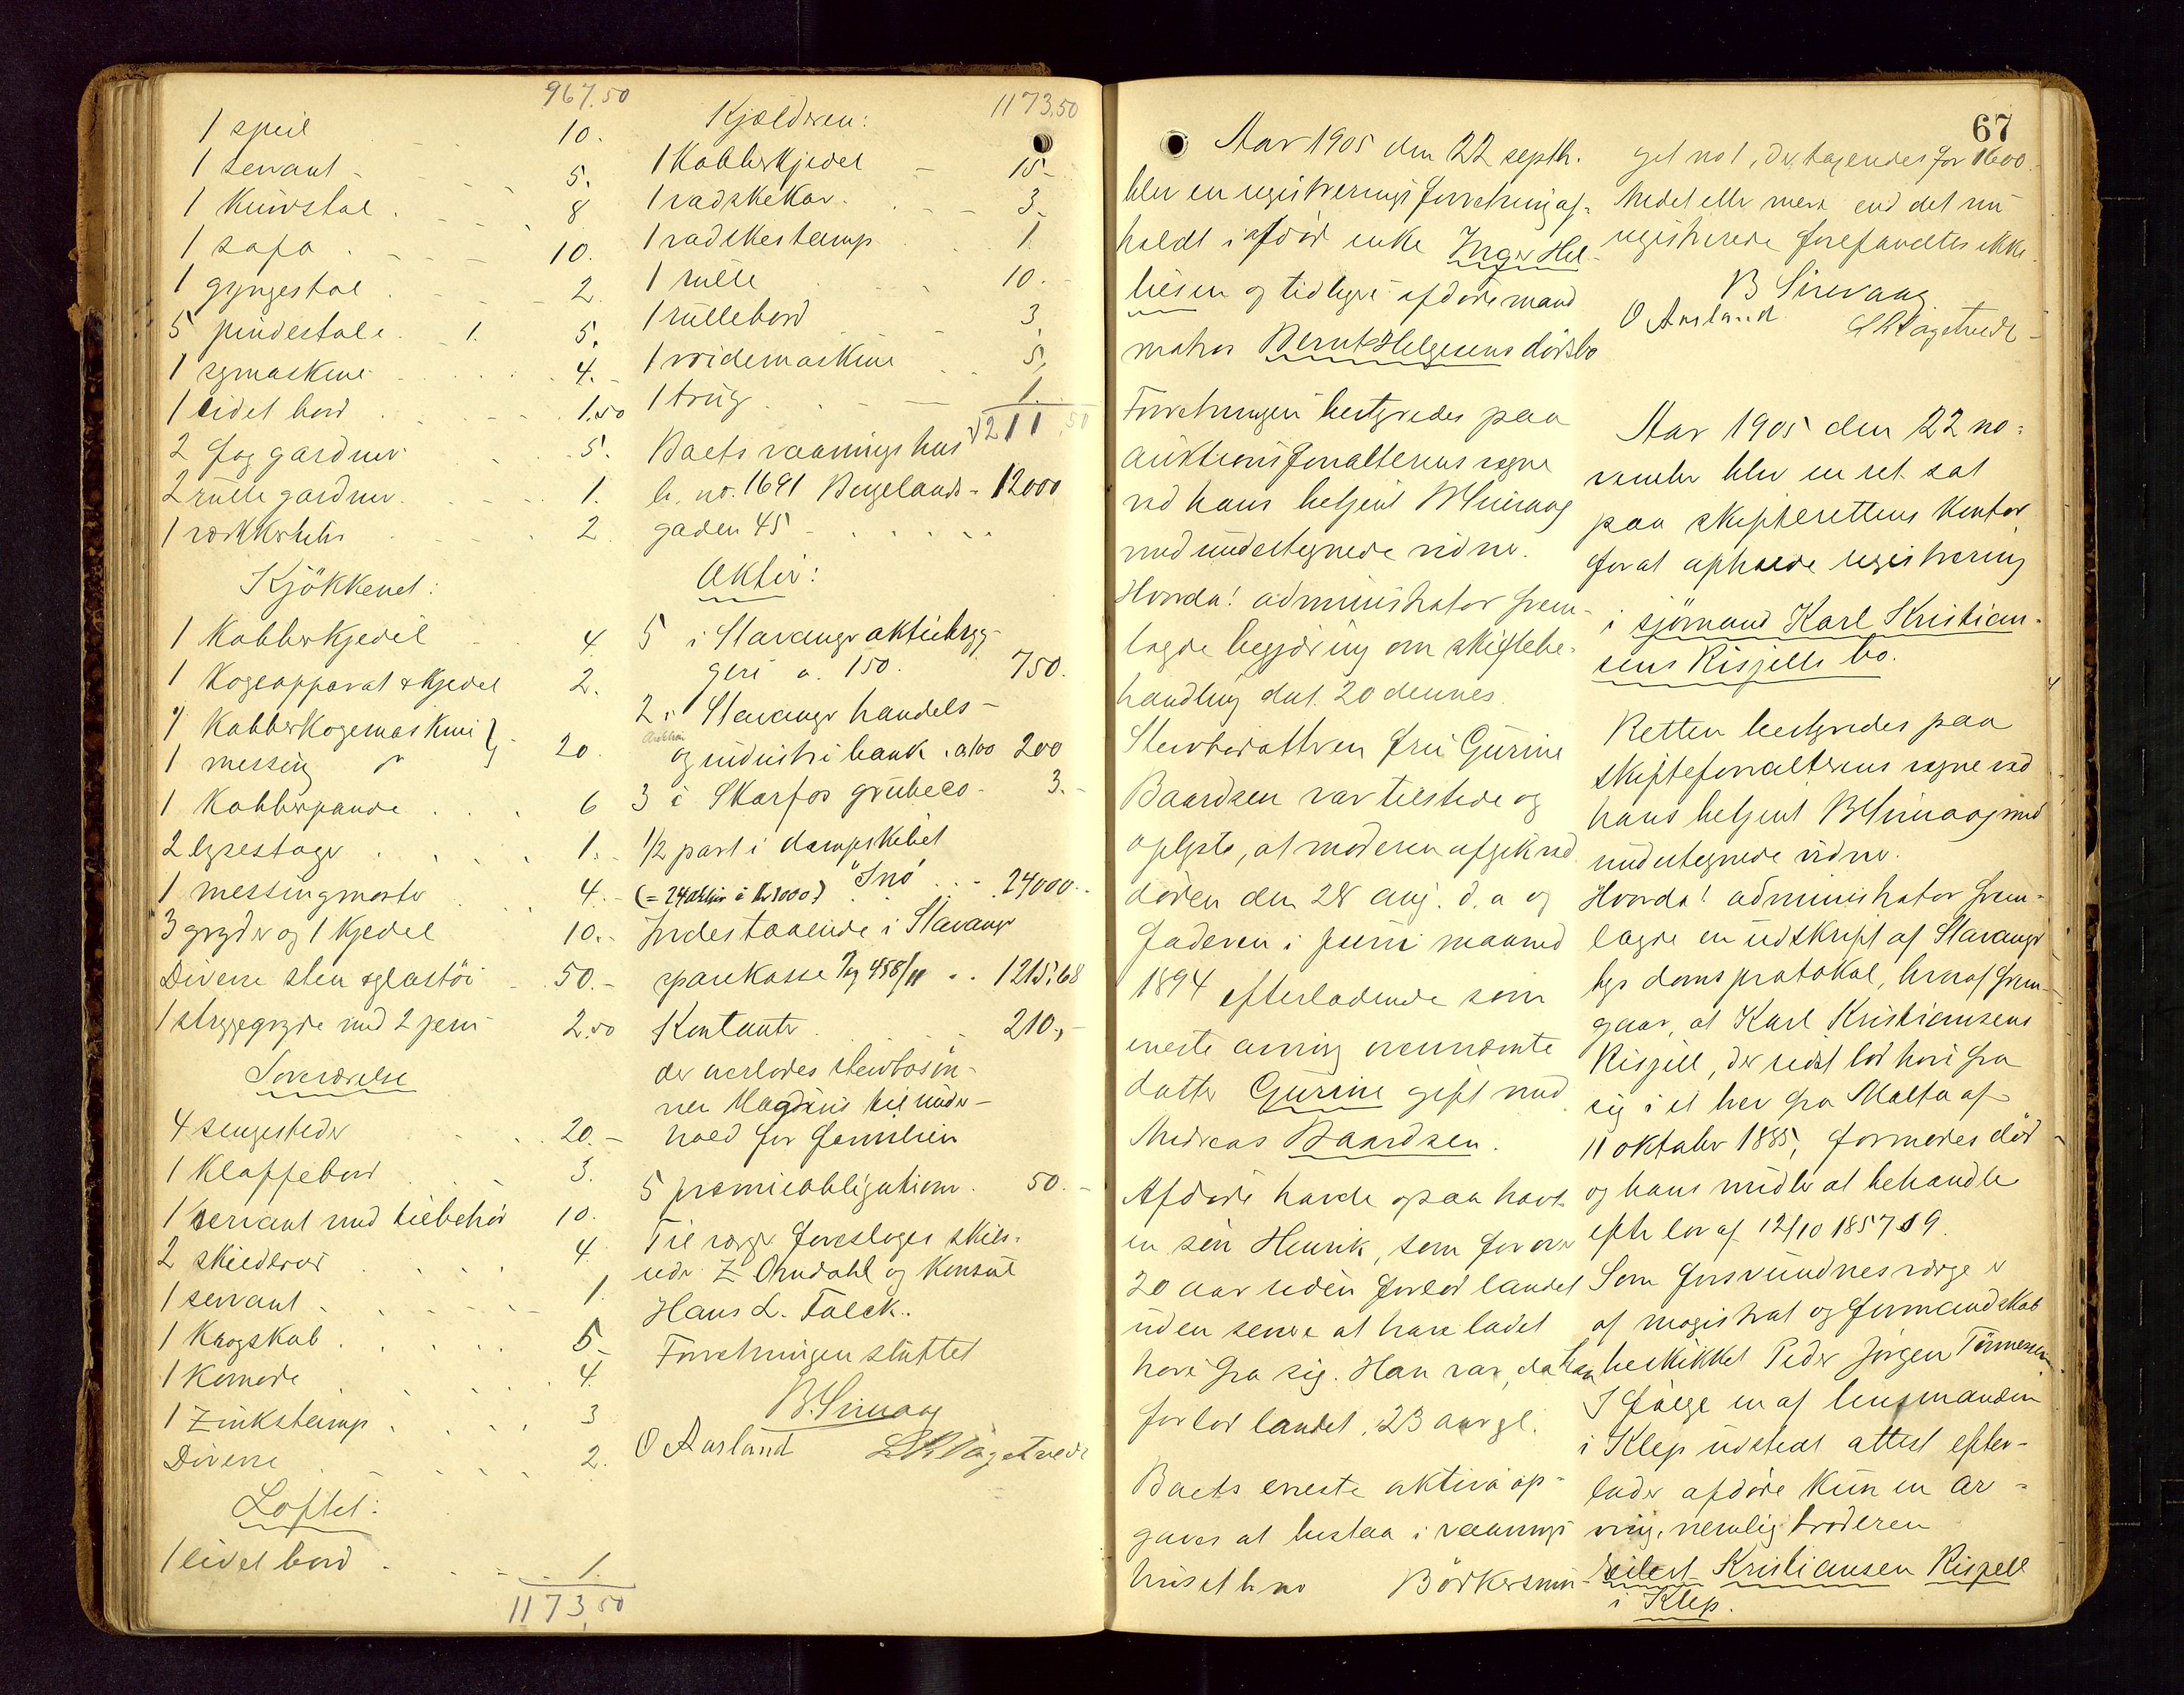 967.50
1 speil 10.
1 servant 5.
1 kurvstol 8
1 sofa 10.
1 gyngestol 2.
5 pindestole 1. 5.
1 symaskine 4.-
1 lidet bord 1.50
2 fag gardiner 5.
2 rulle gardiner 1.
1 2.
Kjökkenet:
1 Kobberkjedel 4
1 Kogeapparat & kjedel 2.
1 Kobberkogemaskine
1 messing " 20.
1 Kobberpande 6
2 lysestager 1.-
1 messingmorter 4.-
3 gryder og 1 kjedel 10.-
Diverse sten & glastöi 50.-
1 strygegryde med 2 jern 2.50
Soveværelse
4 sengesteder 20.-
1 Klappebord 3.
1 servant med tilbehör 10.
2 skilderier 4
1 servant 1.
1 Krogskab 5
1 Komode 4.
1 Zinkstamp 3
Diverse 2.
Loftet:
1 lidet bord 1.
1173,50
1173,50
Kjelderen:
1 Kobberkjedel 15-
1 vadskekar 3.
1 vadskestamp 1.
1 rulle 10.-
1 rullebord 3.
1 vridemaskine 5.
1 trug 1.
1211,50
Boets vaaningshus
b. no. 1691 Bergelands- 12000
gaden 45
Aktier:
5 i Stavanger aktiebryg-
geri a. 150. 750.
2 i Stavanger handels-
og industri bank a. 100 200
3 i Skarfos grubeco- 3.-
1/2 part i dampskibet
(= 24 aktier á kr 1000) "Ino" 24000.-
Indestaaende i Stavanger
sparekasse 458/11 1215.68
Kontanter 210,-
der overlodes stervbosön-
nen Magdius til under-
hold for familien
5 præmieobligationer 50.-
Til værge foreslages skibs-
reder Z Omdahl og Konsul
Hans L. Falck.
Forretningen sluttet
B. Sirevaag
O Aarland
67
Aar 1905 den 22 septb.
blev en registreringsforretning af-
holdt i afdöd enke Inger Hel-
liesen og tidligere afdöde mand
matros Bernt Helgesens dödsbo
Forretningen bestyredes paa
auktionsforvalterens vegne
ved hans betjent B Sirevaag
med undertegnede vidner.
Hvorda! administrator frem-
lagde begjæring om skiftebe-
handling dat. 20 dennes.
Stervbodatteren fru Gurine
Baardsen var tilstede og
oplyste, at moderen afgik ved
döden den 28 aug. d. a og
faderen i juni maaned
1894 efterladende som
eneste arving ovennævnte
datter Gurine gift med
Andreas Baardsen.
Afdöde havde ogsaa havt
en sön Henrik, som for over
20 aar siden forlod landet
uden senere at have ladet
höre fra sig. Han var, da han
forlod landet, 23 aar gl.
Boets eneste aktiva op-
gaves at bestaa i vaanings
huset b no Börkersmu-
get no 1, der toges for 1600.
Andet eller mere end det nu
registrerede forefandtes ikke.
B Sirevaag
O Aarland
Aar 1905 den 22 no-
vember blev en ret sat
paa skifterettens kontor
for at afholde registrering
i sjömand Karl Kristian-
sens Risjells bo.
Retten bestyredes paa
skifteforvalterens vegne ved
hans betjent B Sirevaag med
undertegnede vidner.
Hvorda! administrator frem-
lagde en udskript af Stavanger
bys domsprotokol, hvoraf frem-
gaar, at Karl Kristiansens
Risjell, der sidst lod höre fra
sig i et brev fra Malta af
11 oktober 1885, formodes död
og hans midler at behandle
efter lov af 12/10 1857 § 9.
Som forsvundnes værge er
af magistrat og formandskab
beskikket Peder Jörgen Tönnesen
I fölge en af lensmanden
i Klep udstedt attest efter-
lader afdöde kun en ar-
ving, nemlig broderen
Eilert Kristiansen Risjell
i Klep.